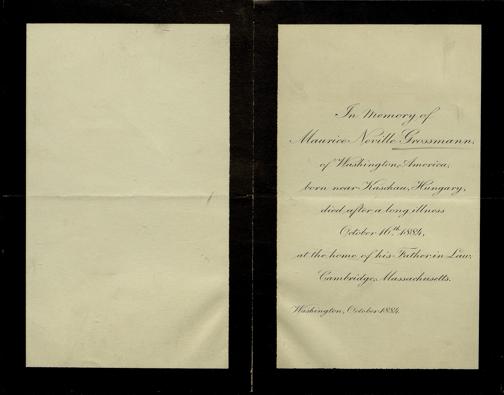 In Memory of
Maurice Neville Grossmann,
of Washington, America,
born near Kaschau, Hungary,
died after a long illness
October 16th 1884,
at the home of his Father in Law,
Cambridge, Massachusetts.
Washington, October 1884.